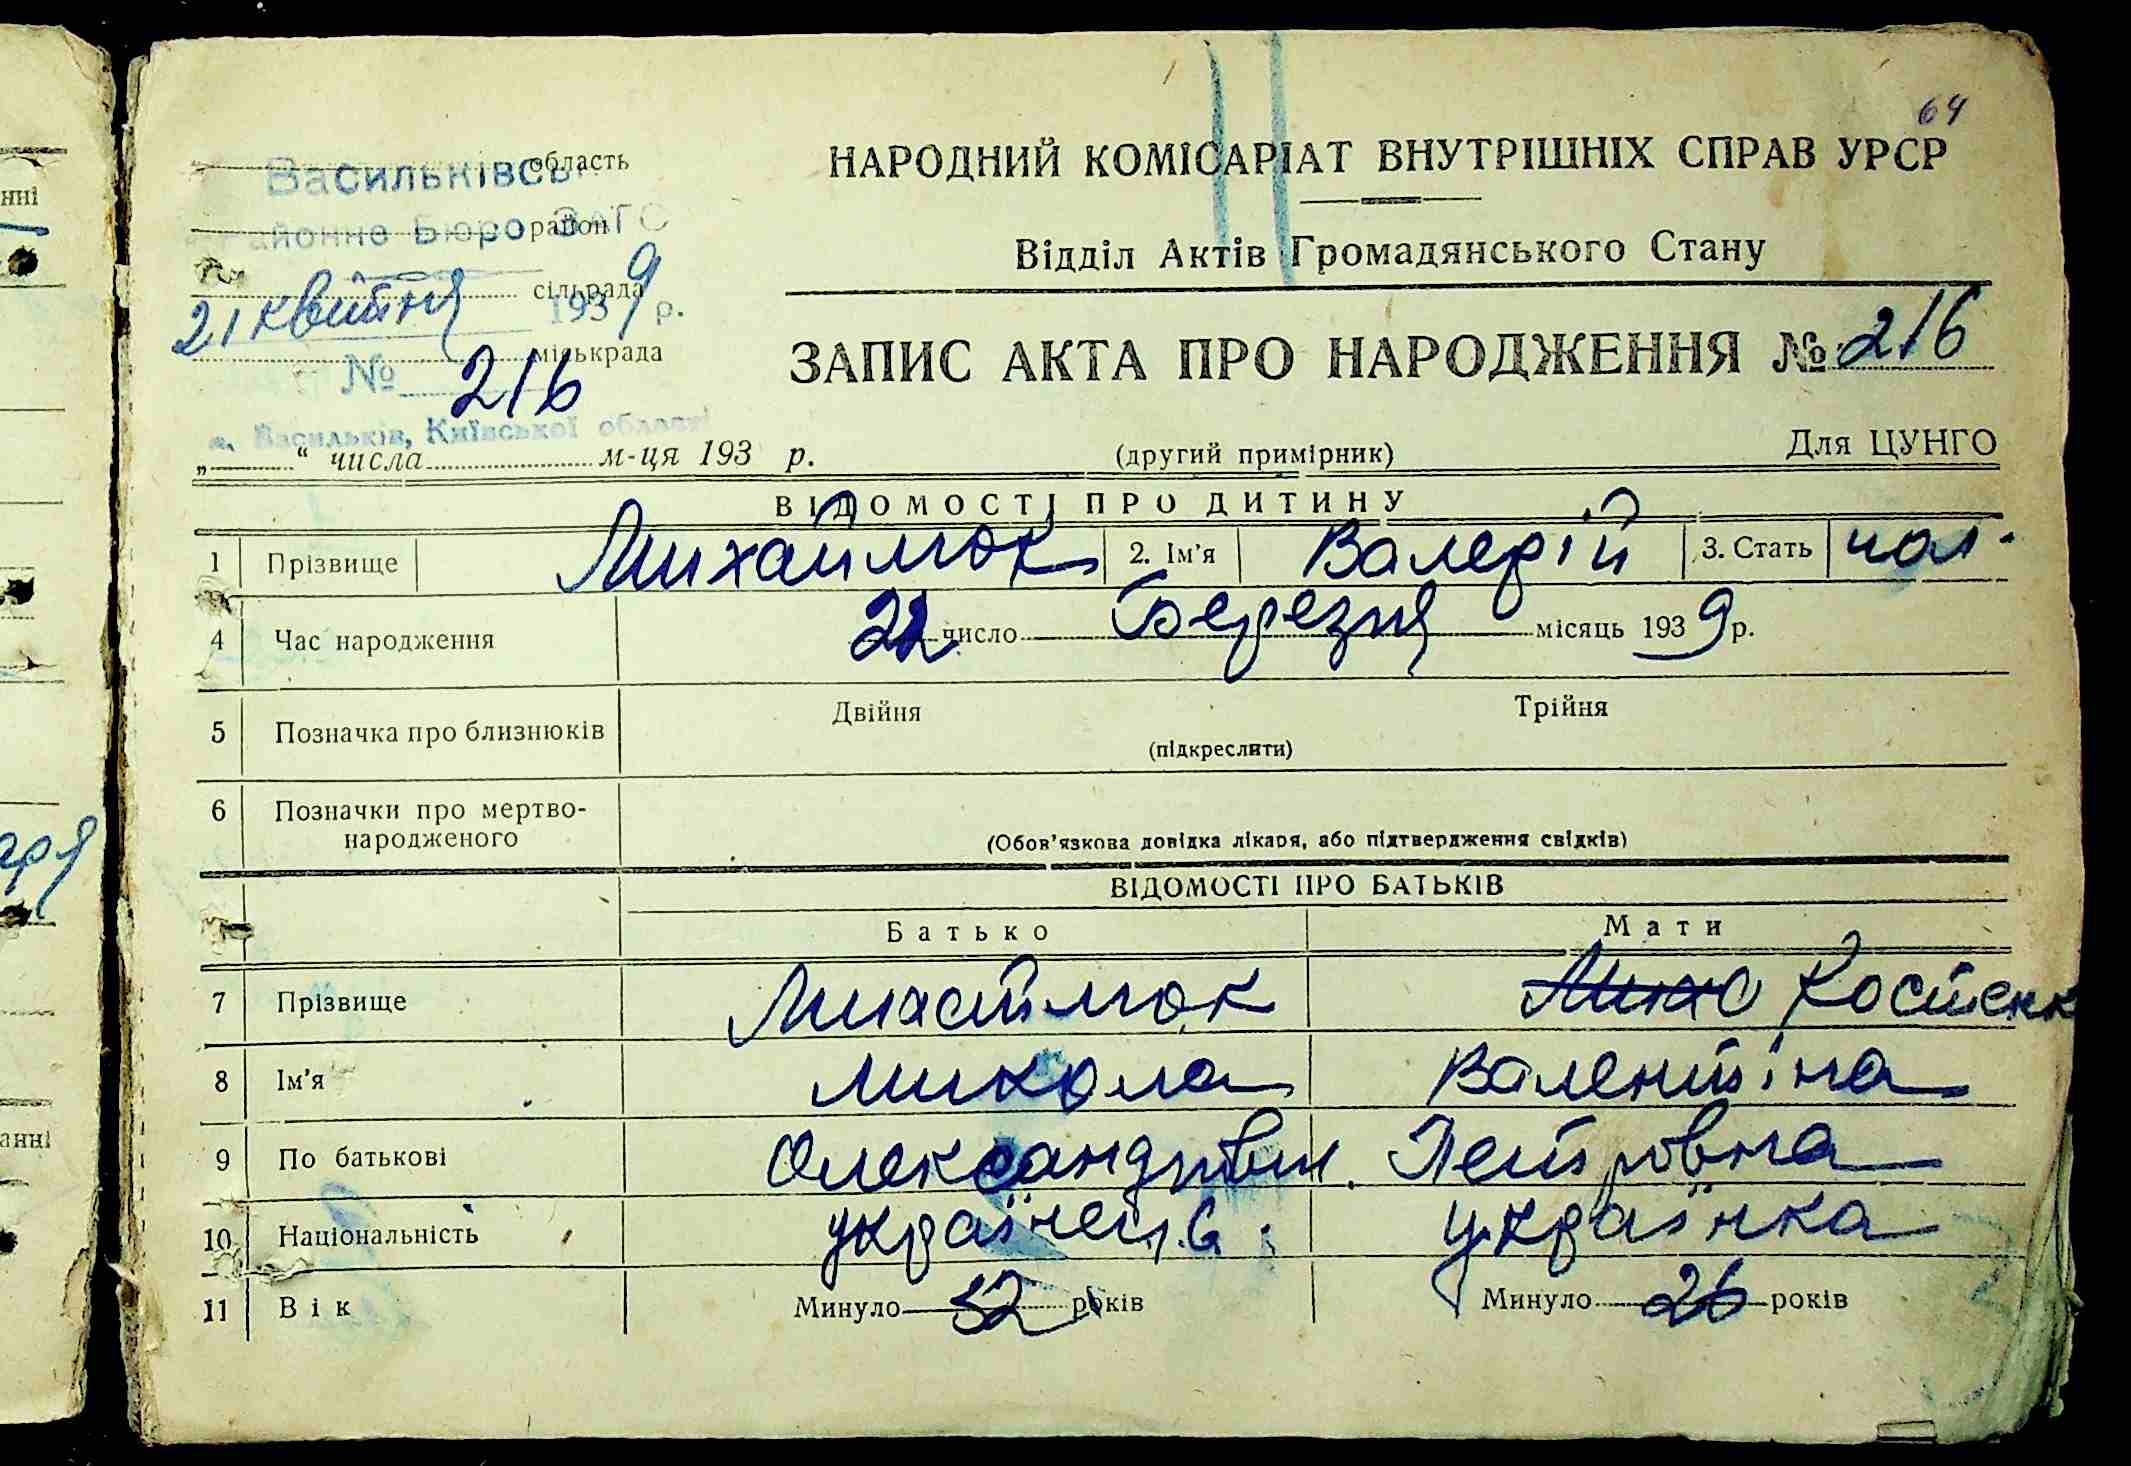 64
НАРОДНИЙ КОМІСАРІАТ ВНУТРІШНІХ СПРАВ УРСР
Відділ Актів Громадянського Стану
область
Васильківсь
район
айонне Бюро ЗАГС
сільрада
21 квітня 1939 р.
міськрада
№ 216
м. Васильків, Київської області
„ “ числа м-ця 193 р.
ЗАПИС АКТА ПРО НАРОДЖЕННЯ № 216
(другий примірник)
Для ЦУНГО
ВІДОМОСТІ ПРО ДИТИНУ
1 Прізвище Михаймюк 2. Ім'я Валерій 3. Стать чол.
4 Час народження 22 число Березня місяць 1939 р.
5 Позначка про близнюків Двійня Трійня
(підкреслити)
6 Позначки про мертво-
народженого
(Обов'язкова довідка лікаря, або підтвердження свідків)
ВІДОМОСТІ ПРО БАТЬКІВ
Батько Мати
7 Прізвище Костенк
8 Ім'я Микола Валентіна
9 По батькові Олександрівич. Петровна
10 Національність українець Українка
11 Вік Минуло 32 років Минуло 26 років
нні
аря
анні